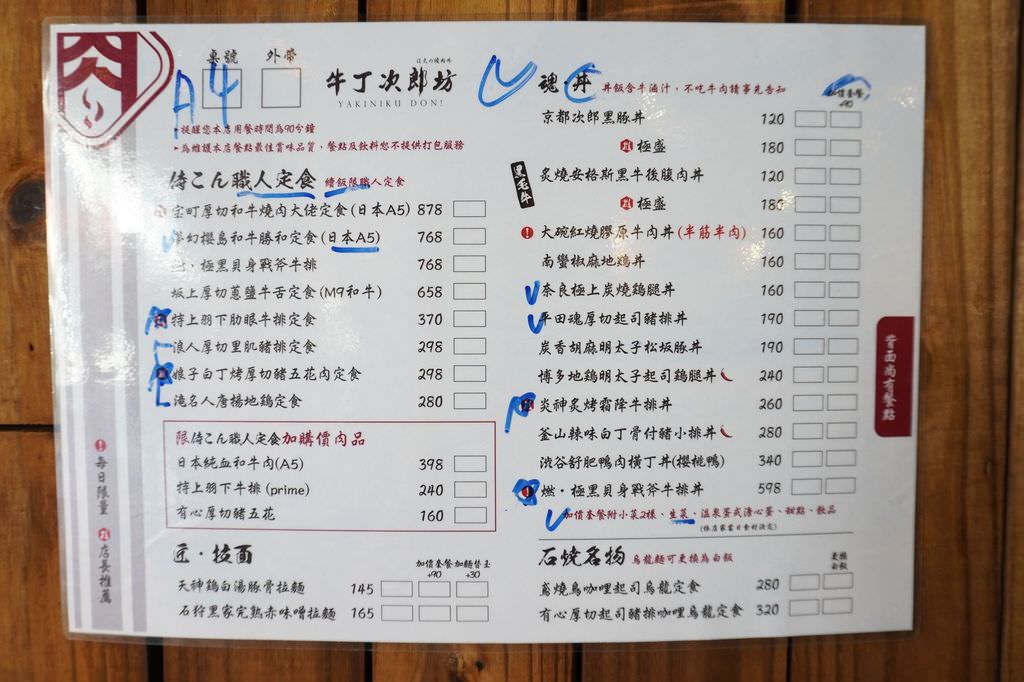 桌號 外帶
A4
はたの燒肉丼
牛丁次郎坊
YAKINIKU DON!
▸提醒您本店用餐時間為90分鐘
▸為維護本店餐點最佳賞味品質,餐點及飲料您不提供打包服務
侍こん職人定食 續飯限職人定食
宝町厚切和牛燒肉大佬定食(日本A5) 878
夢幻櫻島和牛勝和定食(日本A5) 768
燃・極黑貝身戰斧牛排 768
坂上厚切蔥鹽牛舌定食(M9和牛) 658
特上羽下肋眼牛排定食 370
浪人厚切里肌豬排定食 298
娘子白丁烤厚切豬五花肉定食 298
滝名人唐揚地鶏定食 280
限侍こん職人定食加購價肉品
日本純血和牛肉(A5) 398
特上羽下牛排 (prime) 240
有心厚切豬五花 160
匠・拉面
加價套餐 +90 加麵替玉 +30
天神鶏白湯豚骨拉麵 145
石狩黑家完熟赤味噌拉麵 165
魂・丼 丼飯含牛滷汁,不吃牛肉請事先告知
加價套餐 +90
京都次郎黑豚丼 120
極盛 180
黑毛牛
炙燒安格斯黑牛後腹肉丼 120
極盛 180
大碗紅燒膠原牛肉丼(半筋半肉) 160
南蠻椒麻地鶏丼 160
奈良極上炭燒鶏腿丼 160
平田魂厚切起司豬排丼 190
炭香胡麻明太子松坂豚丼 190
博多地鶏明太子起司鶏腿丼 240
炎神炙烤霜降牛排丼 260
釜山辣味白丁骨付豬小排丼 280
涉谷舒肥鴨肉橫丁丼(櫻桃鴨) 340
燃・極黑貝身戰斧牛排丼 598
加價套餐附小菜2樣、生菜、溫泉蛋或溏心蛋、甜點、飲品
(依店家當日食材決定)
石燒名物 烏龍麵可更換為白飯
更換白飯
鳶燒鳥咖哩起司烏龍定食 280
有心厚切起司豬排咖哩烏龍定食 320
背面尚有餐點
每日限量
店長推薦